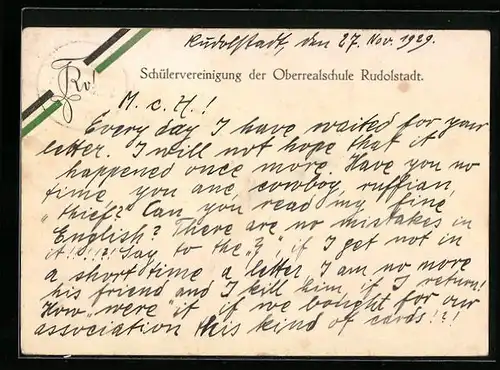 Rudolstadt, den 27. Nov. 1929.
Rv!
Schülervereinigung der Oberrealschule Rudolstadt.
M. c. H.!
Every day I have waited for your
letter. I will not hope that it
happened once more. Have you no
time you ane, cowboy, ruffian,
"thief?" Can you read my fine
English? There are no mistakes in
it!!!?! Say to the „?", if I get not in
a short time a letter I am no more
his friend and I kill him, if I return!
How „were" it if we bought for our
association this kind of cards!?!